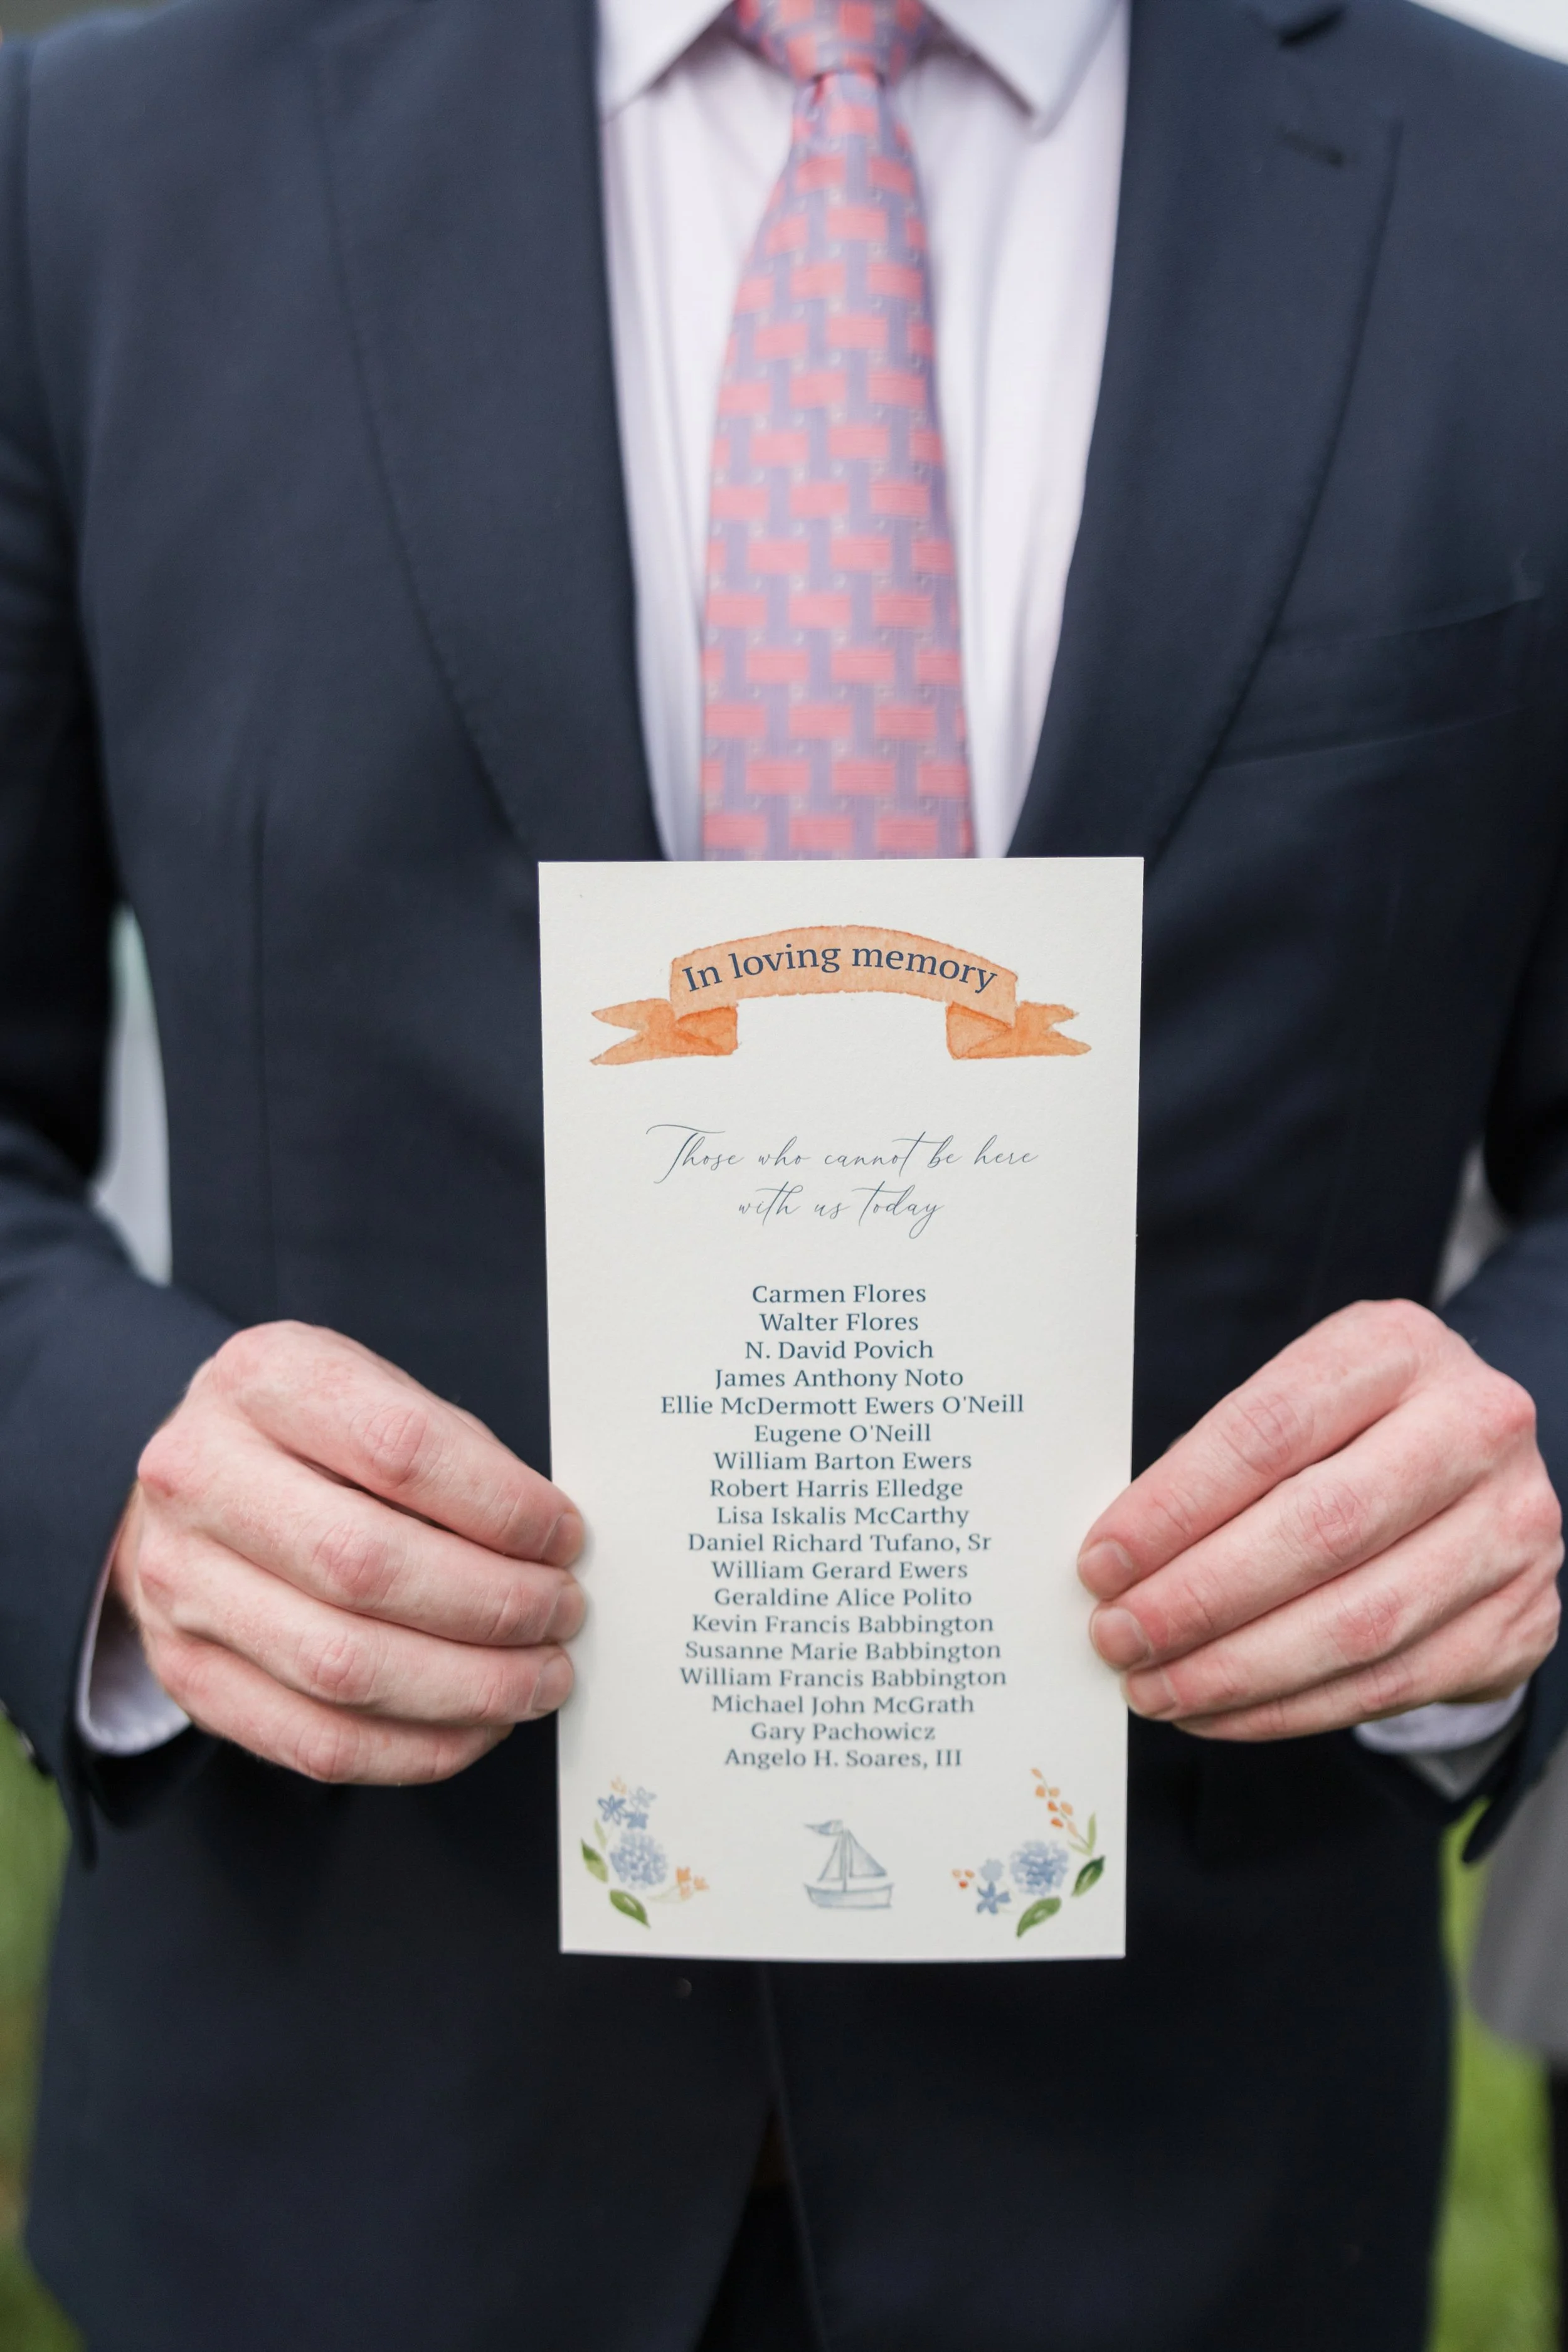 In loving memory
Those who cannot be here
with us today
Carmen Flores
Walter Flores
N. David Povich
James Anthony Noto
Ellie McDermott Ewers O'Neill
Eugene O'Neill
William Barton Ewers
Robert Harris Elledge
Lisa Iskalis McCarthy
Daniel Richard Tufano, Sr
William Gerard Ewers
Geraldine Alice Polito
Kevin Francis Babbington
Susanne Marie Babbington
William Francis Babbington
Michael John McGrath
Gary Pachowicz
Angelo H. Soares, III